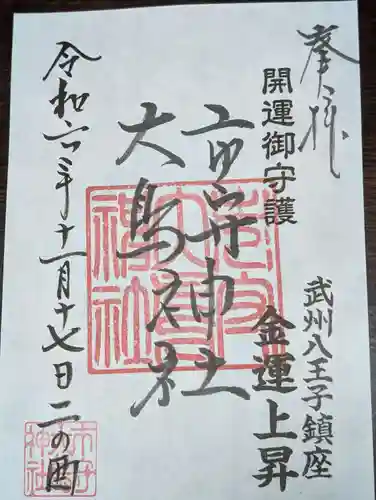 奉拝
開運御守護
武州八王子鎮座
金運上昇
市守神社
大鳥神社
令和六年十一月十七日
二の酉
市守
神社